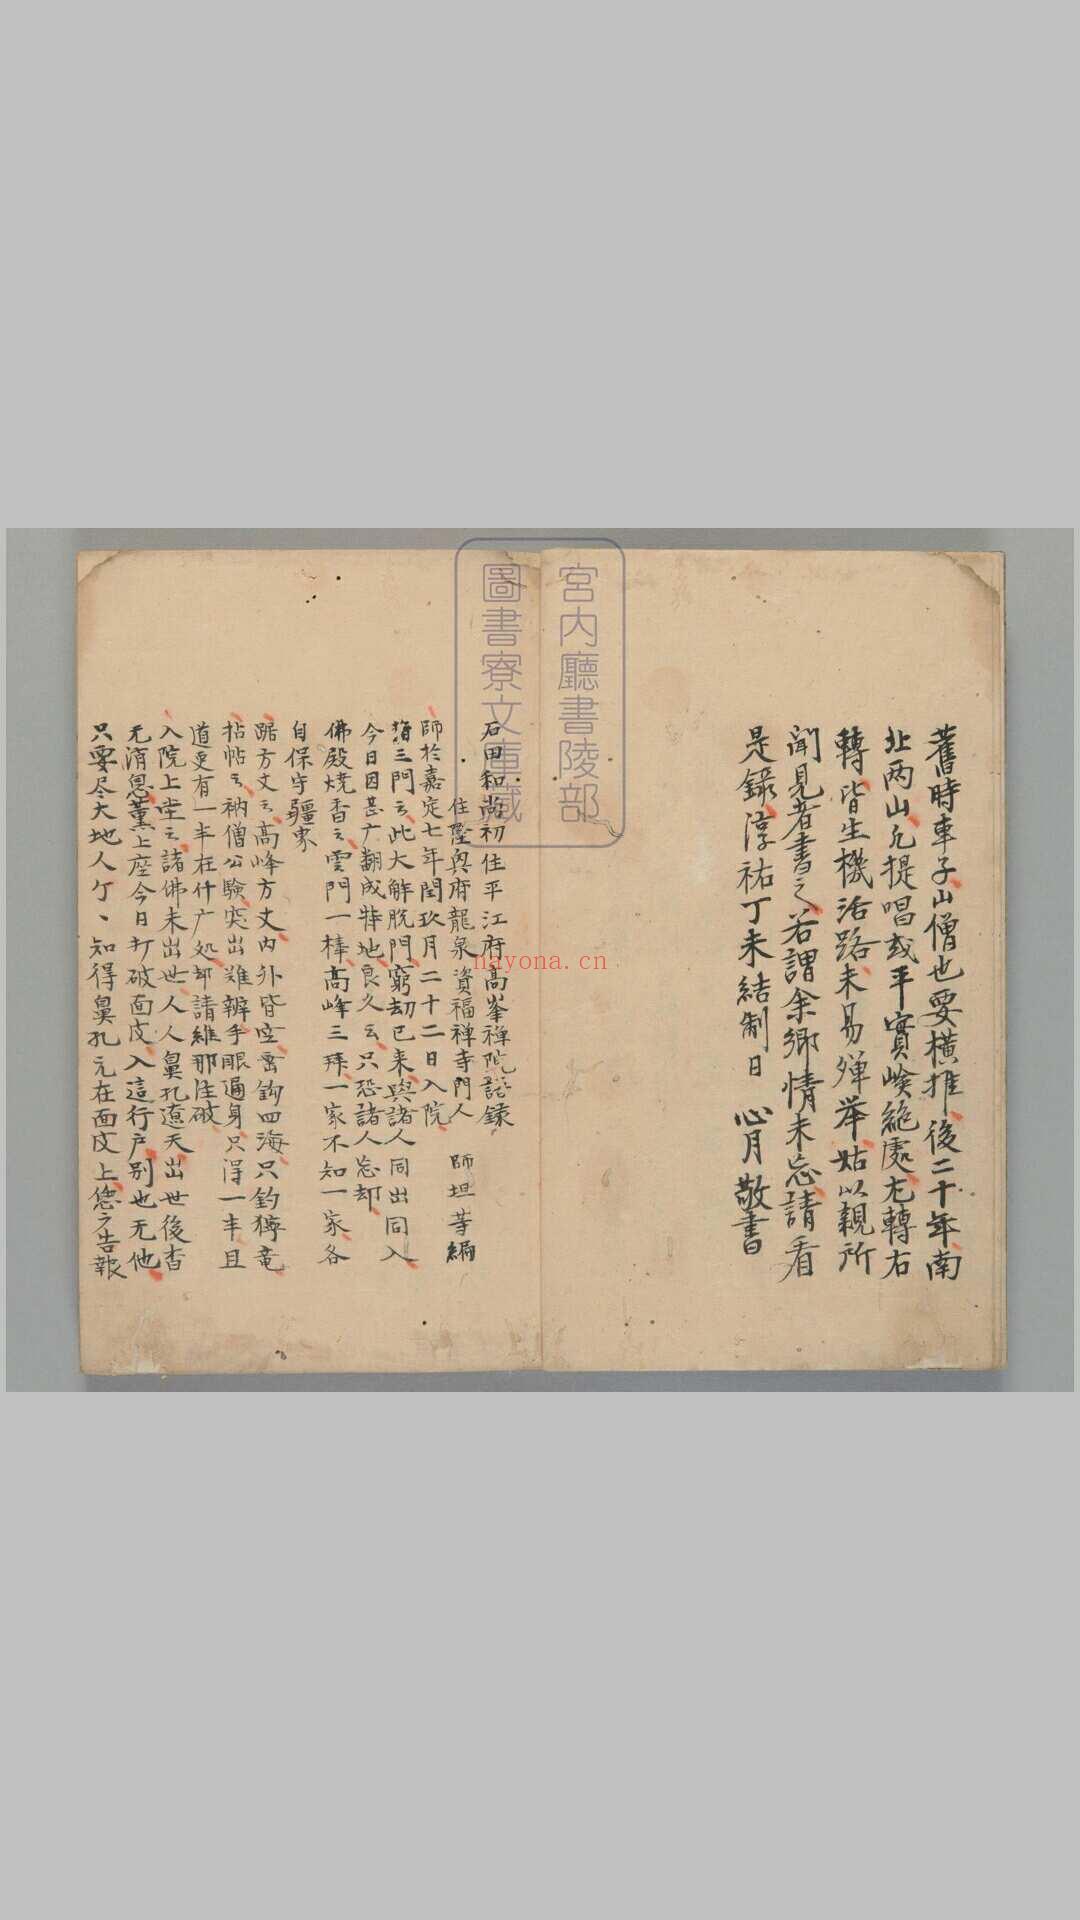 舊時車子山僧也要橫推後二十年南
北兩山凡提唱或平實嶮絕處左轉右
轉皆生機活路未易殫举姑以親所
聞見者書之若謂余鄉情未忘請看
是録淳祐丁未結制日　心月敬書
石田和尚初住平江府髙峯禅院語録
住隆興府龍泉資福禅寺門人　師坦等編
師於嘉定七年閏玖月二十二日入院
指三門云此大解脱門窮劫已来與諸人同出同入
今日因甚广翻成特地良久云只恐諸人忘却
佛殿燒香云雲門一棒髙峰三拜一家不知一家各
自保守疆界
踞方丈云髙峰方丈内外皆空雷鈎四海只釣獰竜
拈帖云衲僧公験突出难辨手眼遍身只淂一半且
道更有一半在什广処却請維那注破
入院上堂云諸佛未出世人人鼻孔遼天出世後杳
无消息薫上座今日打破面皮入這行户别也无他
只要尽大地人个、知得鼻孔元在面皮上恁广告報
宮内廳書陵部
圖書寮文庫藏
nayona.cn